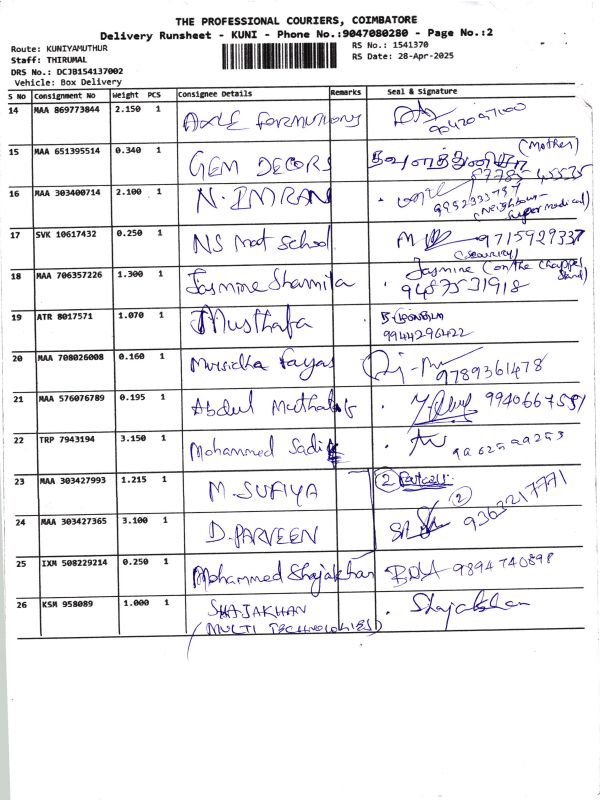 THE PROFESSIONAL COURIERS, COIMBATORE
Delivery Runsheet - KUNI - Phone No.:9047080280 - Page No.:2
Route: KUNIYAMUTHUR
RS No.: 1541370
Staff: THIRUMAL
RS Date: 28-Apr-2025
DRS No.: DCJB154137002
Vehicle: Box Delivery
S No Consignment No Weight PCS Consignee Details Remarks Seal & Signature
14 MAA 869773844 2.150 1 AXLE
15 MAA 651395514 0.340 1 GEM DECORS (Mother)
16 MAA 303400714 2.100 1 N. IMRAN
9952333757
(Neighbour
Super medical)
17 SVK 10617432 0.250 1 NS Mat School 9715929337
(Security)
18 MAA 706357226 1.300 1 Jasmine Sharmila Jasmine
9487531918
19 ATR 8017571 1.070 1 Musthafa
9944296422
20 MAA 708026008 0.160 1 Fayas 9789361478
21 MAA 576076789 0.195 1 Abdul
22 TRP 7943194 3.150 1 Mohammed Sadik
23 MAA 303427993 1.215 1 M. SUFIYA 2
24 MAA 303427365 3.100 1 D. PARVEEN 2 9363217771
25 IXM 508229214 0.250 1 Mohammed Shajakhan 9894740898
26 KSM 958089 1.000 1 SHAJAKHAN Shajakhan
(MULTI TECHNOLOGIES)